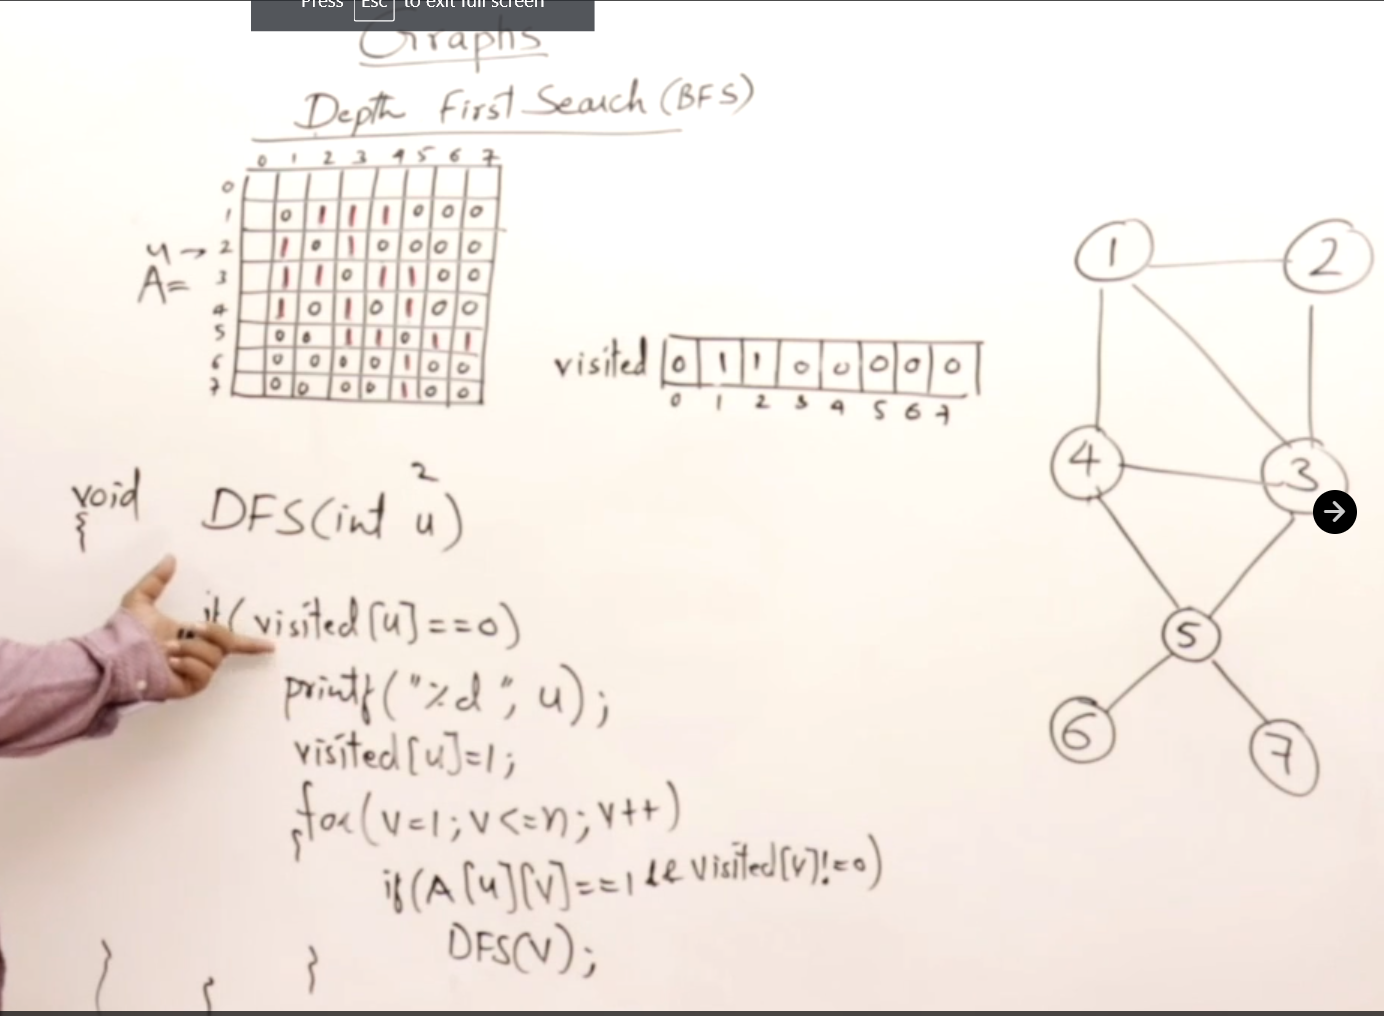 Press Esc to exit full screen
Graphs
Depth First Search (BFS)
0 1 2 3 4 5 6 7
0
1 0 1 1 1 0 0 0
u → 2 1 0 1 0 0 0 0
A= 3 1 1 0 1 1 0 0
4 1 0 1 0 1 0 0
5 0 0 1 1 0 1 1
6 0 0 0 0 1 0 0
7 0 0 0 0 1 0 0
visited 0 1 1 0 0 0 0 0
0 1 2 3 4 5 6 7
1 2
4 3
5
6 7
2
void DFS(int u)
{
if(visited[u]==0)
printf("%d", u);
visited[u]=1;
for(v=1; v<=n; v++)
{
if(A[u][v]==1 && visited[v]!=0)
DFS(v);
}
}
}